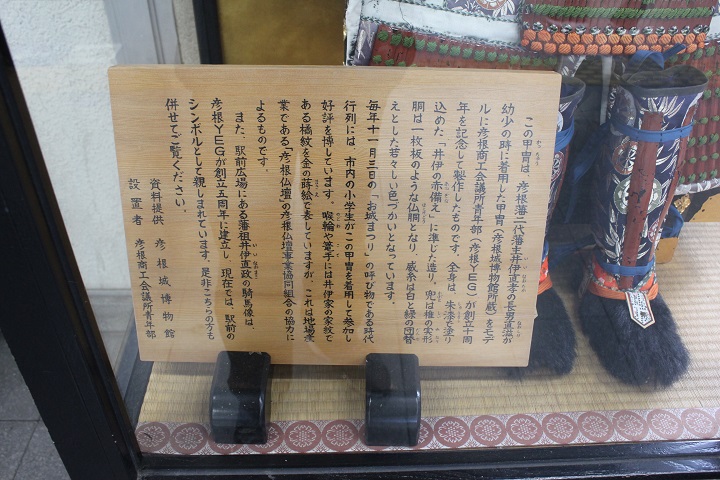 この甲冑は、彦根藩二代藩主井伊直孝の長男直滋が
幼少の時に着用した甲冑（彦根城博物館所蔵）をモデ
ルに彦根商工会議所青年部（彦根YEG）が創立十周
年を記念して製作したものです。全身は、朱漆で塗り
込めた「井伊の赤備え」に準じた造り。兜は椎の実形
胴は一枚板のような仏胴となり、威糸は白と緑の段替
えとした若々しい色づかいとなっています。
毎年十一月三日の「お城まつり」の呼び物である時代
行列には、市内の小学生がこの甲冑を着用して参加し
好評を博しています。喉輪や篭手には井伊家の家紋で
ある橘紋を金の蒔絵で表していますが、これは地場産
業である「彦根仏壇」の彦根仏壇事業協同組合の協力に
よるものです。
また、駅前広場にある藩祖井伊直政の騎馬像は、
彦根YEGが創立五周年に建立し、現在では、駅前の
シンボルとして親しまれています。是非こちらの方も
併せてご覧ください。
資料提供 彦根城博物館
設置者 彦根商工会議所青年部